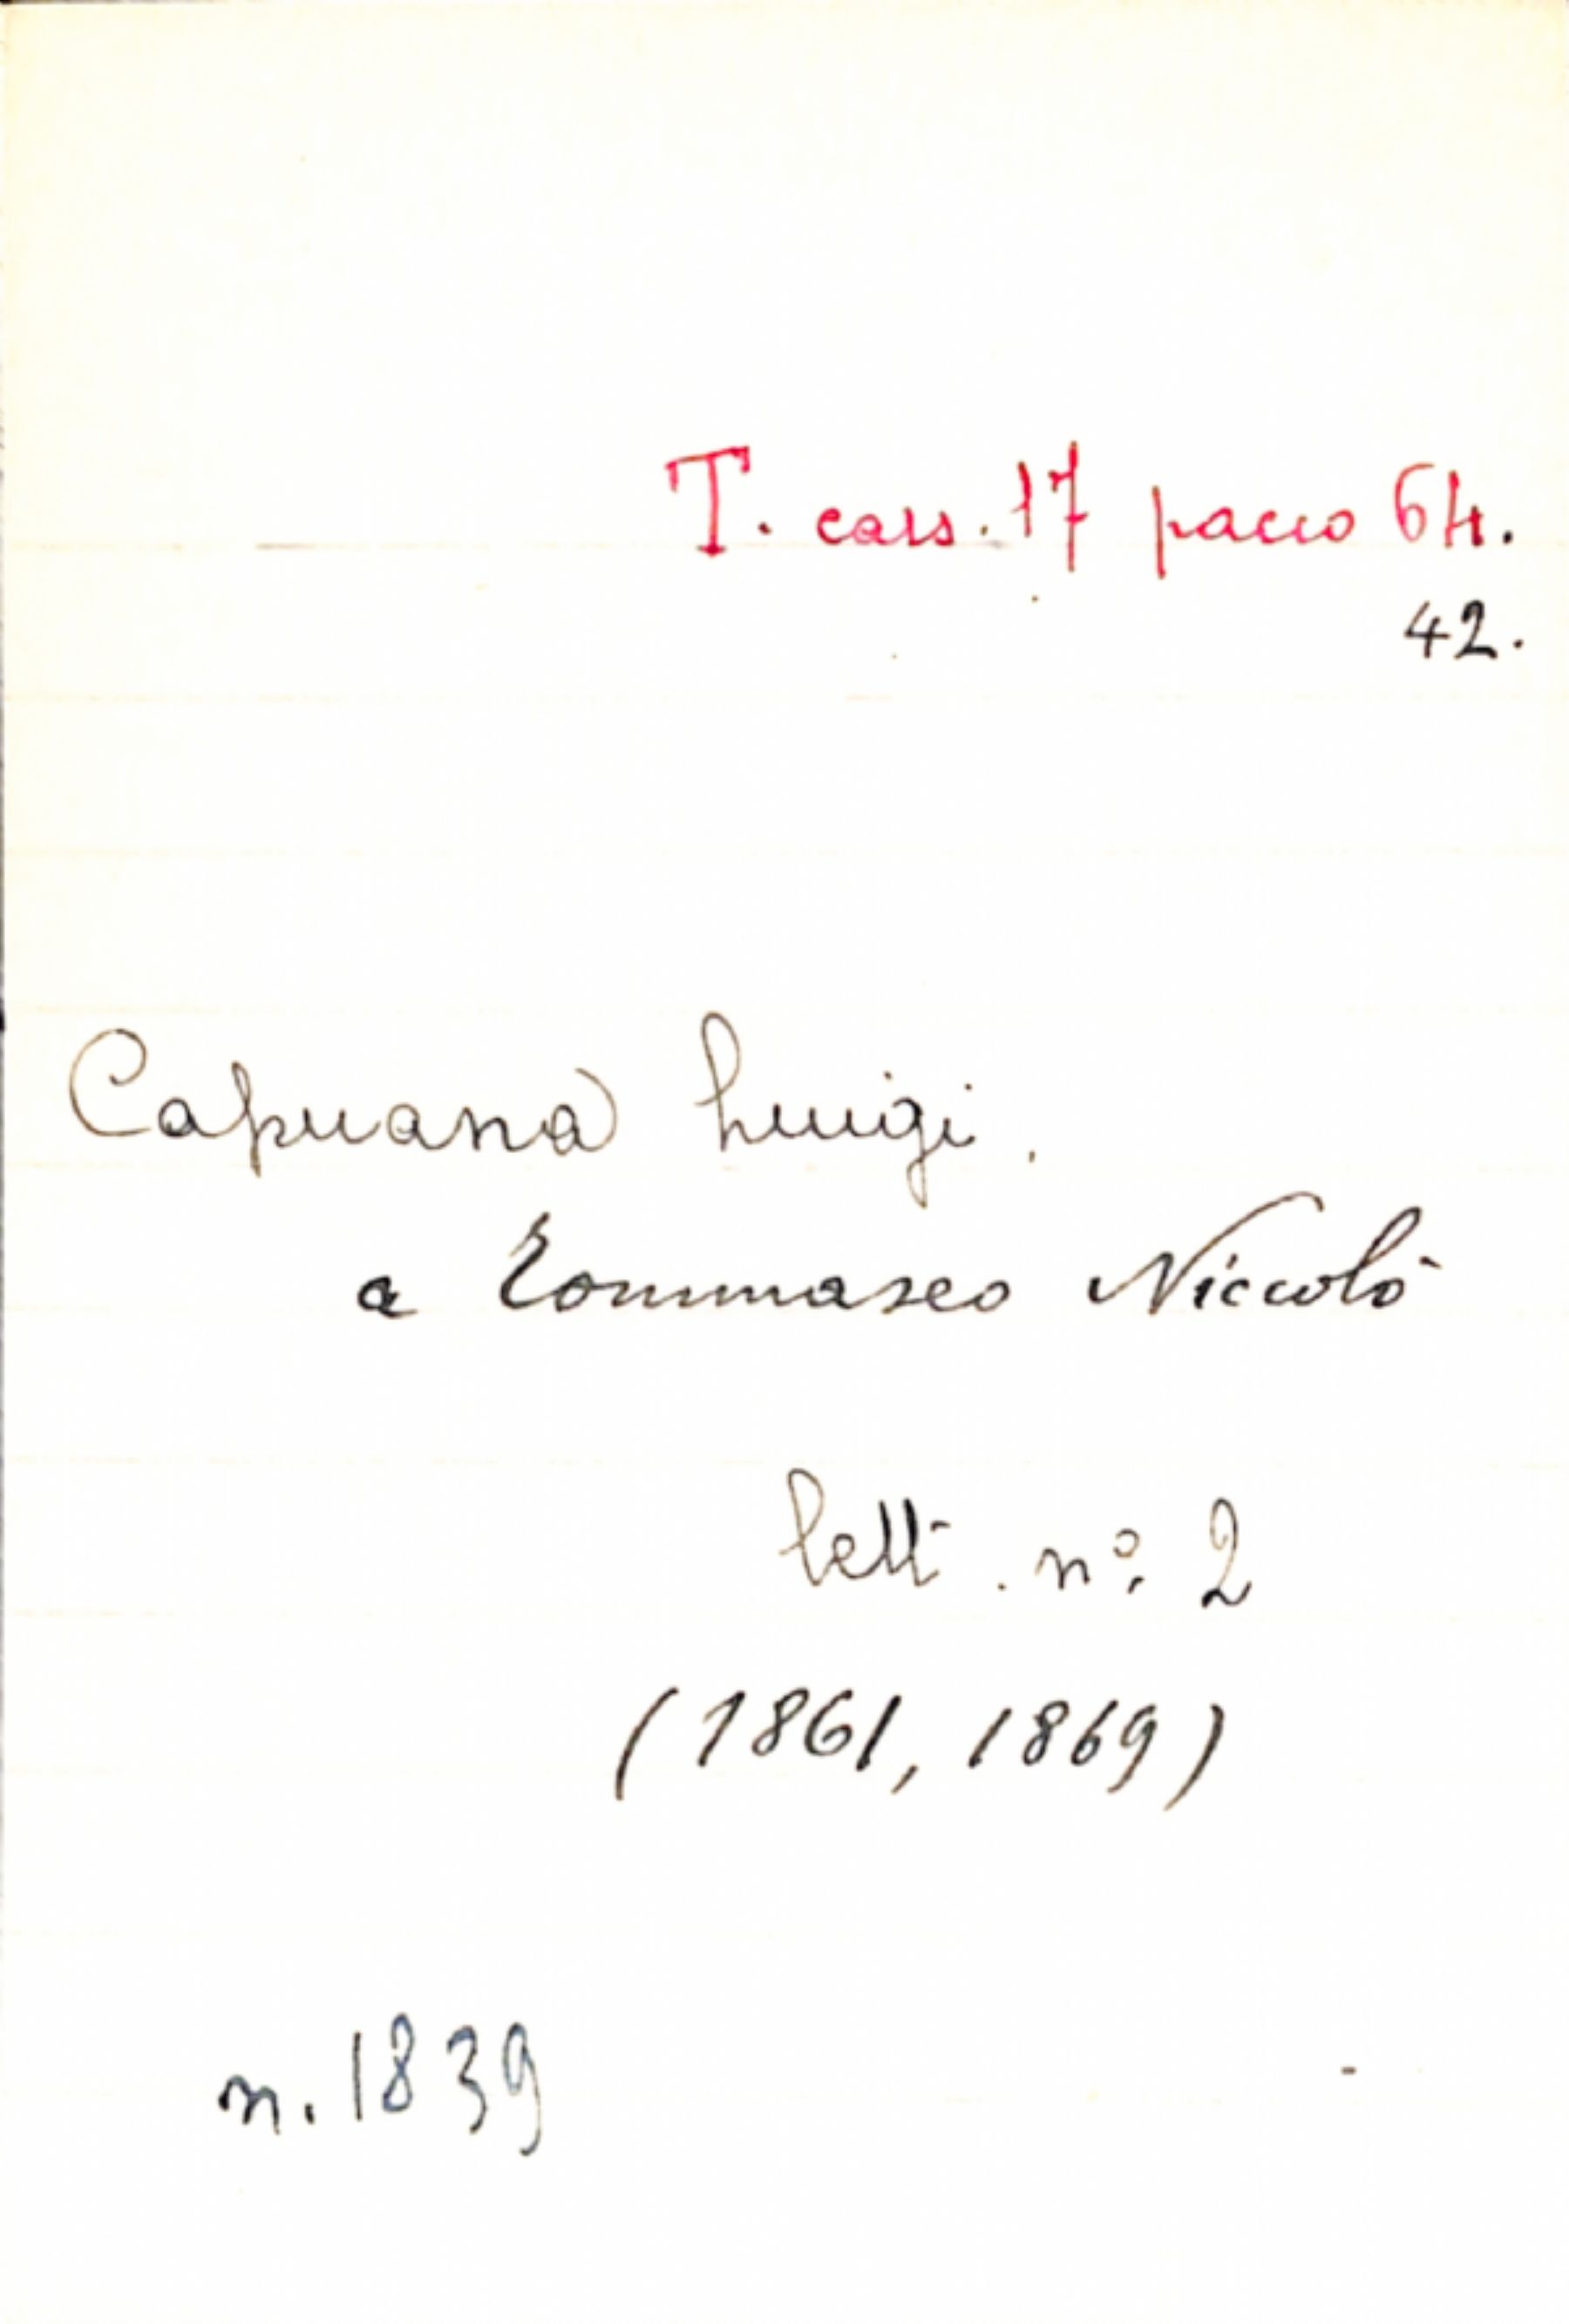 T. cass. 17 pacco 64.
42.
Capuana Luigi.
a Tommaseo Niccolò
lett. nº. 2
(1861, 1869)
n. 1839